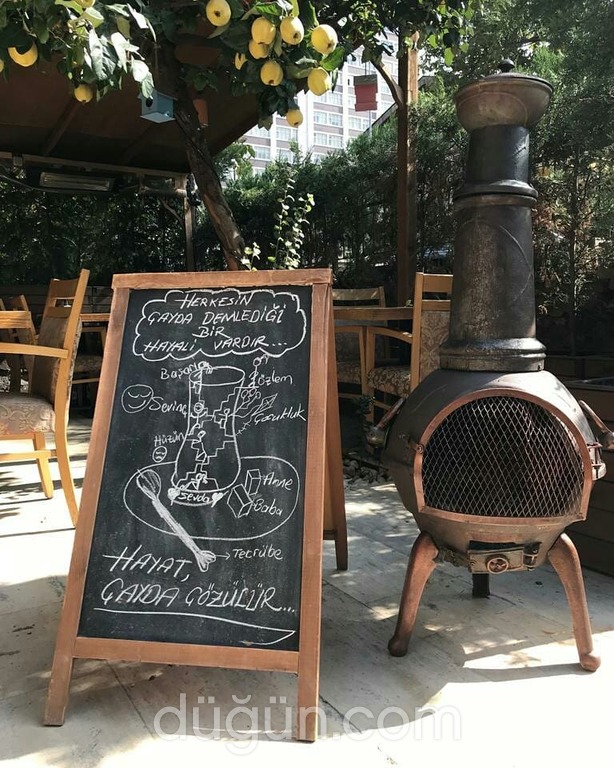 HERKESİN
ÇAYDA DEMLEDİĞİ
BİR
HAYALİ VARDIR...
Başarı
Özlem
Sevinç
Çocukluk
Hüzün
Sevda
Anne
Baba
Tecrübe
HAYAT,
ÇAYDA ÇÖZÜLÜR...
düğün.com